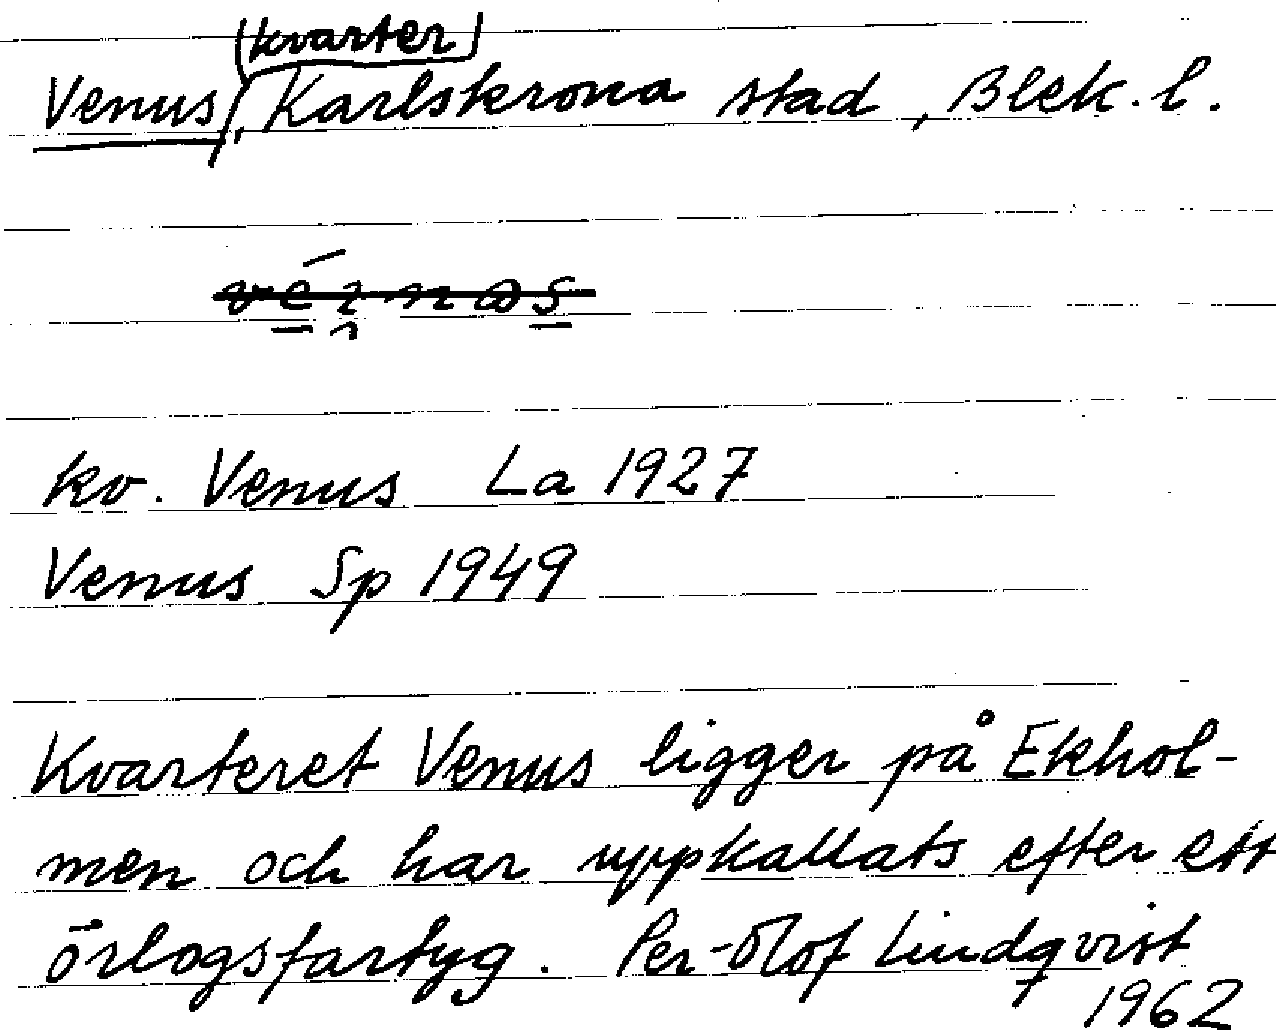 (kvarter)
Venus, Karlskrona stad, Blek. l.
kv. Venus La 1927
Venus Sp 1949
Kvarteret Venus ligger på Ekhol-
men och har uppkallats efter ett
örlogsfartyg. Per-Olof Lindqvist
1962